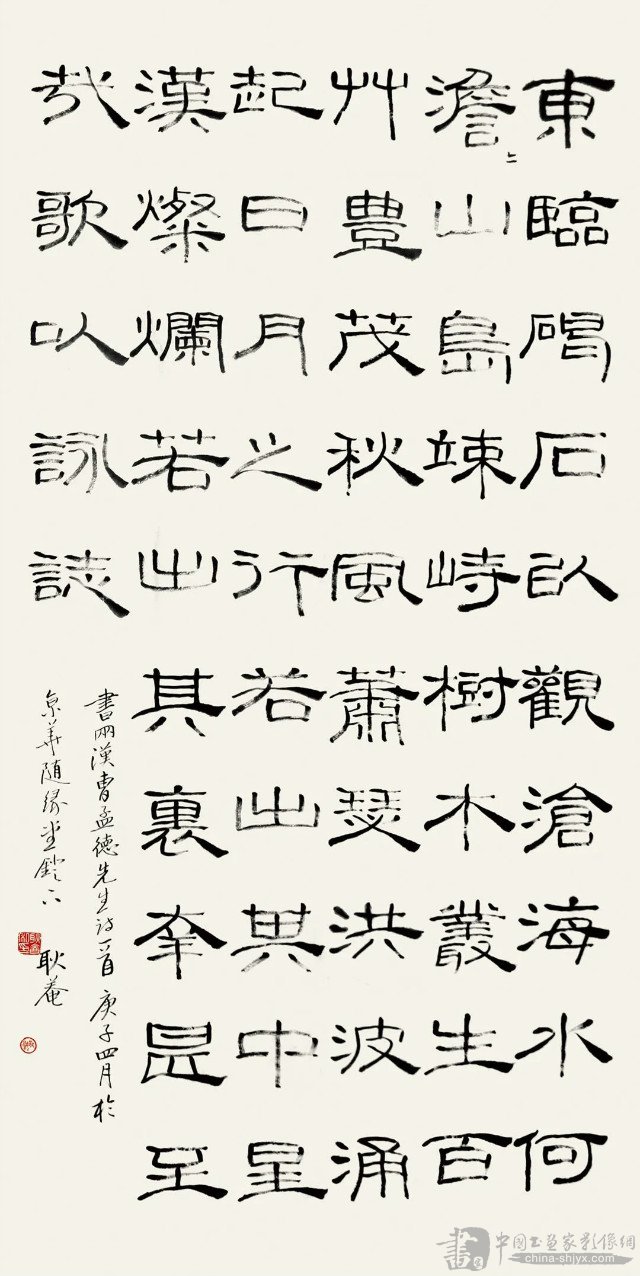 東臨碣石以觀滄海水何
澹〻山島竦峙樹木叢生百
艸豊茂秋風蕭瑟洪波涌
起日月之行若出其中星
漢燦爛若出其裏幸甚至
哉歌以詠誌
書兩漢曹孟德先生诗一首 庚子四月於
京華随緣堂鐙下 耿菴
書 中國书画家影像網
china-shjyx.com